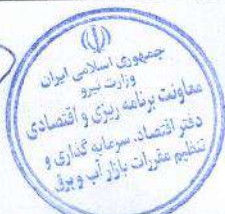 جمهوری اسلامی ایران
وزارت نیرو
معاونت برنامه ریزی و اقتصادی
دفتر اقتصاد، سرمایه گذاری و
تنظیم مقررات بازار آب و برق